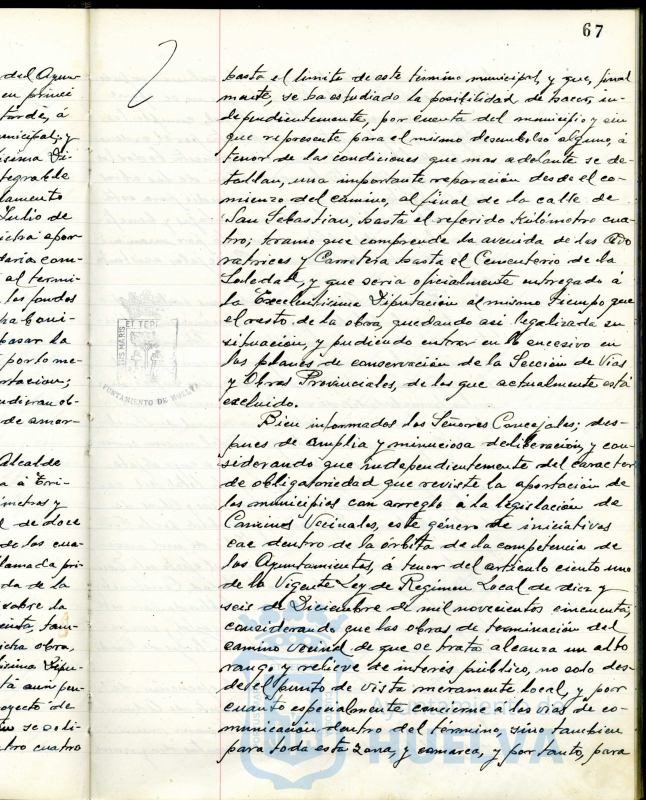 67
del Ayun-
en princi
tarde, á
unicipal; y
ísima Di-
tegrable
lamento
Julio de
icha apor-
daria com-
al termi-
los fondos
pasar la
por lo me-
ortacion;
udieran ob-
de amor-
Alcalde
a á Tri-
imetros y
de doce
de los cua-
llamada pri-
da de la
sobre la
icha obra,
ísima Dipu-
tá aun pen-
oyecto de
se soli-
tro cuatro
hasta el limite de este término municipal, y que, final
mente, se ha estudiado la posibilidad de hacer, in-
dependientemente, por cuenta del municipio y sin
que represente para el mismo desembolso alguno, á
tenor de las condiciones que mas adelante se de-
tallan, una importante reparación desde el co-
mienzo del camino, al final de la calle de
San Sebastian, hasta el referido Kilómetro cua-
tro; tramo que comprende la avenida de las Ado
ratrices y Carretera hasta el Cementerio de la
Soledad, y que seria oficialmente entregado á
la Excelentisima Diputación al mismo tiempo que
el resto de la obra, quedando asi legalizada su
situación, y pudiendo entrar en lo sucesivo en
los planes de conservación de la Sección de Vias
y Obras Provinciales, de los que actualmente está
excluido.
Bien informados los Señores Concejales; des-
pues de amplia y minuciosa deliberación, y con-
siderando que independientemente del caracter
de obligatoriedad que reviste la aportación de
los municipios con arreglo á la legislación de
Caminos Vecinales, este género de iniciativas
cae dentro de la órbita de la competencia de
los Ayuntamientos, á tenor del articulo ciento uno
de la Vigente Ley de Regimen Local de diez y
seis de Diciembre de mil novecientos cincuenta;
considerando que las obras de terminación del
camino vecinal de que se trata alcanza un alto
rango y relieve de interés público, no solo des-
de el punto de vista meramente local, y por
cuanto especialmente concierne a las vias de co-
municación dentro del término, sino tambien
para toda esta zona, y comarca, y por tanto, para
AYUNTAMIENTO DE HUELVA
Ayuntamiento de
HUELVA